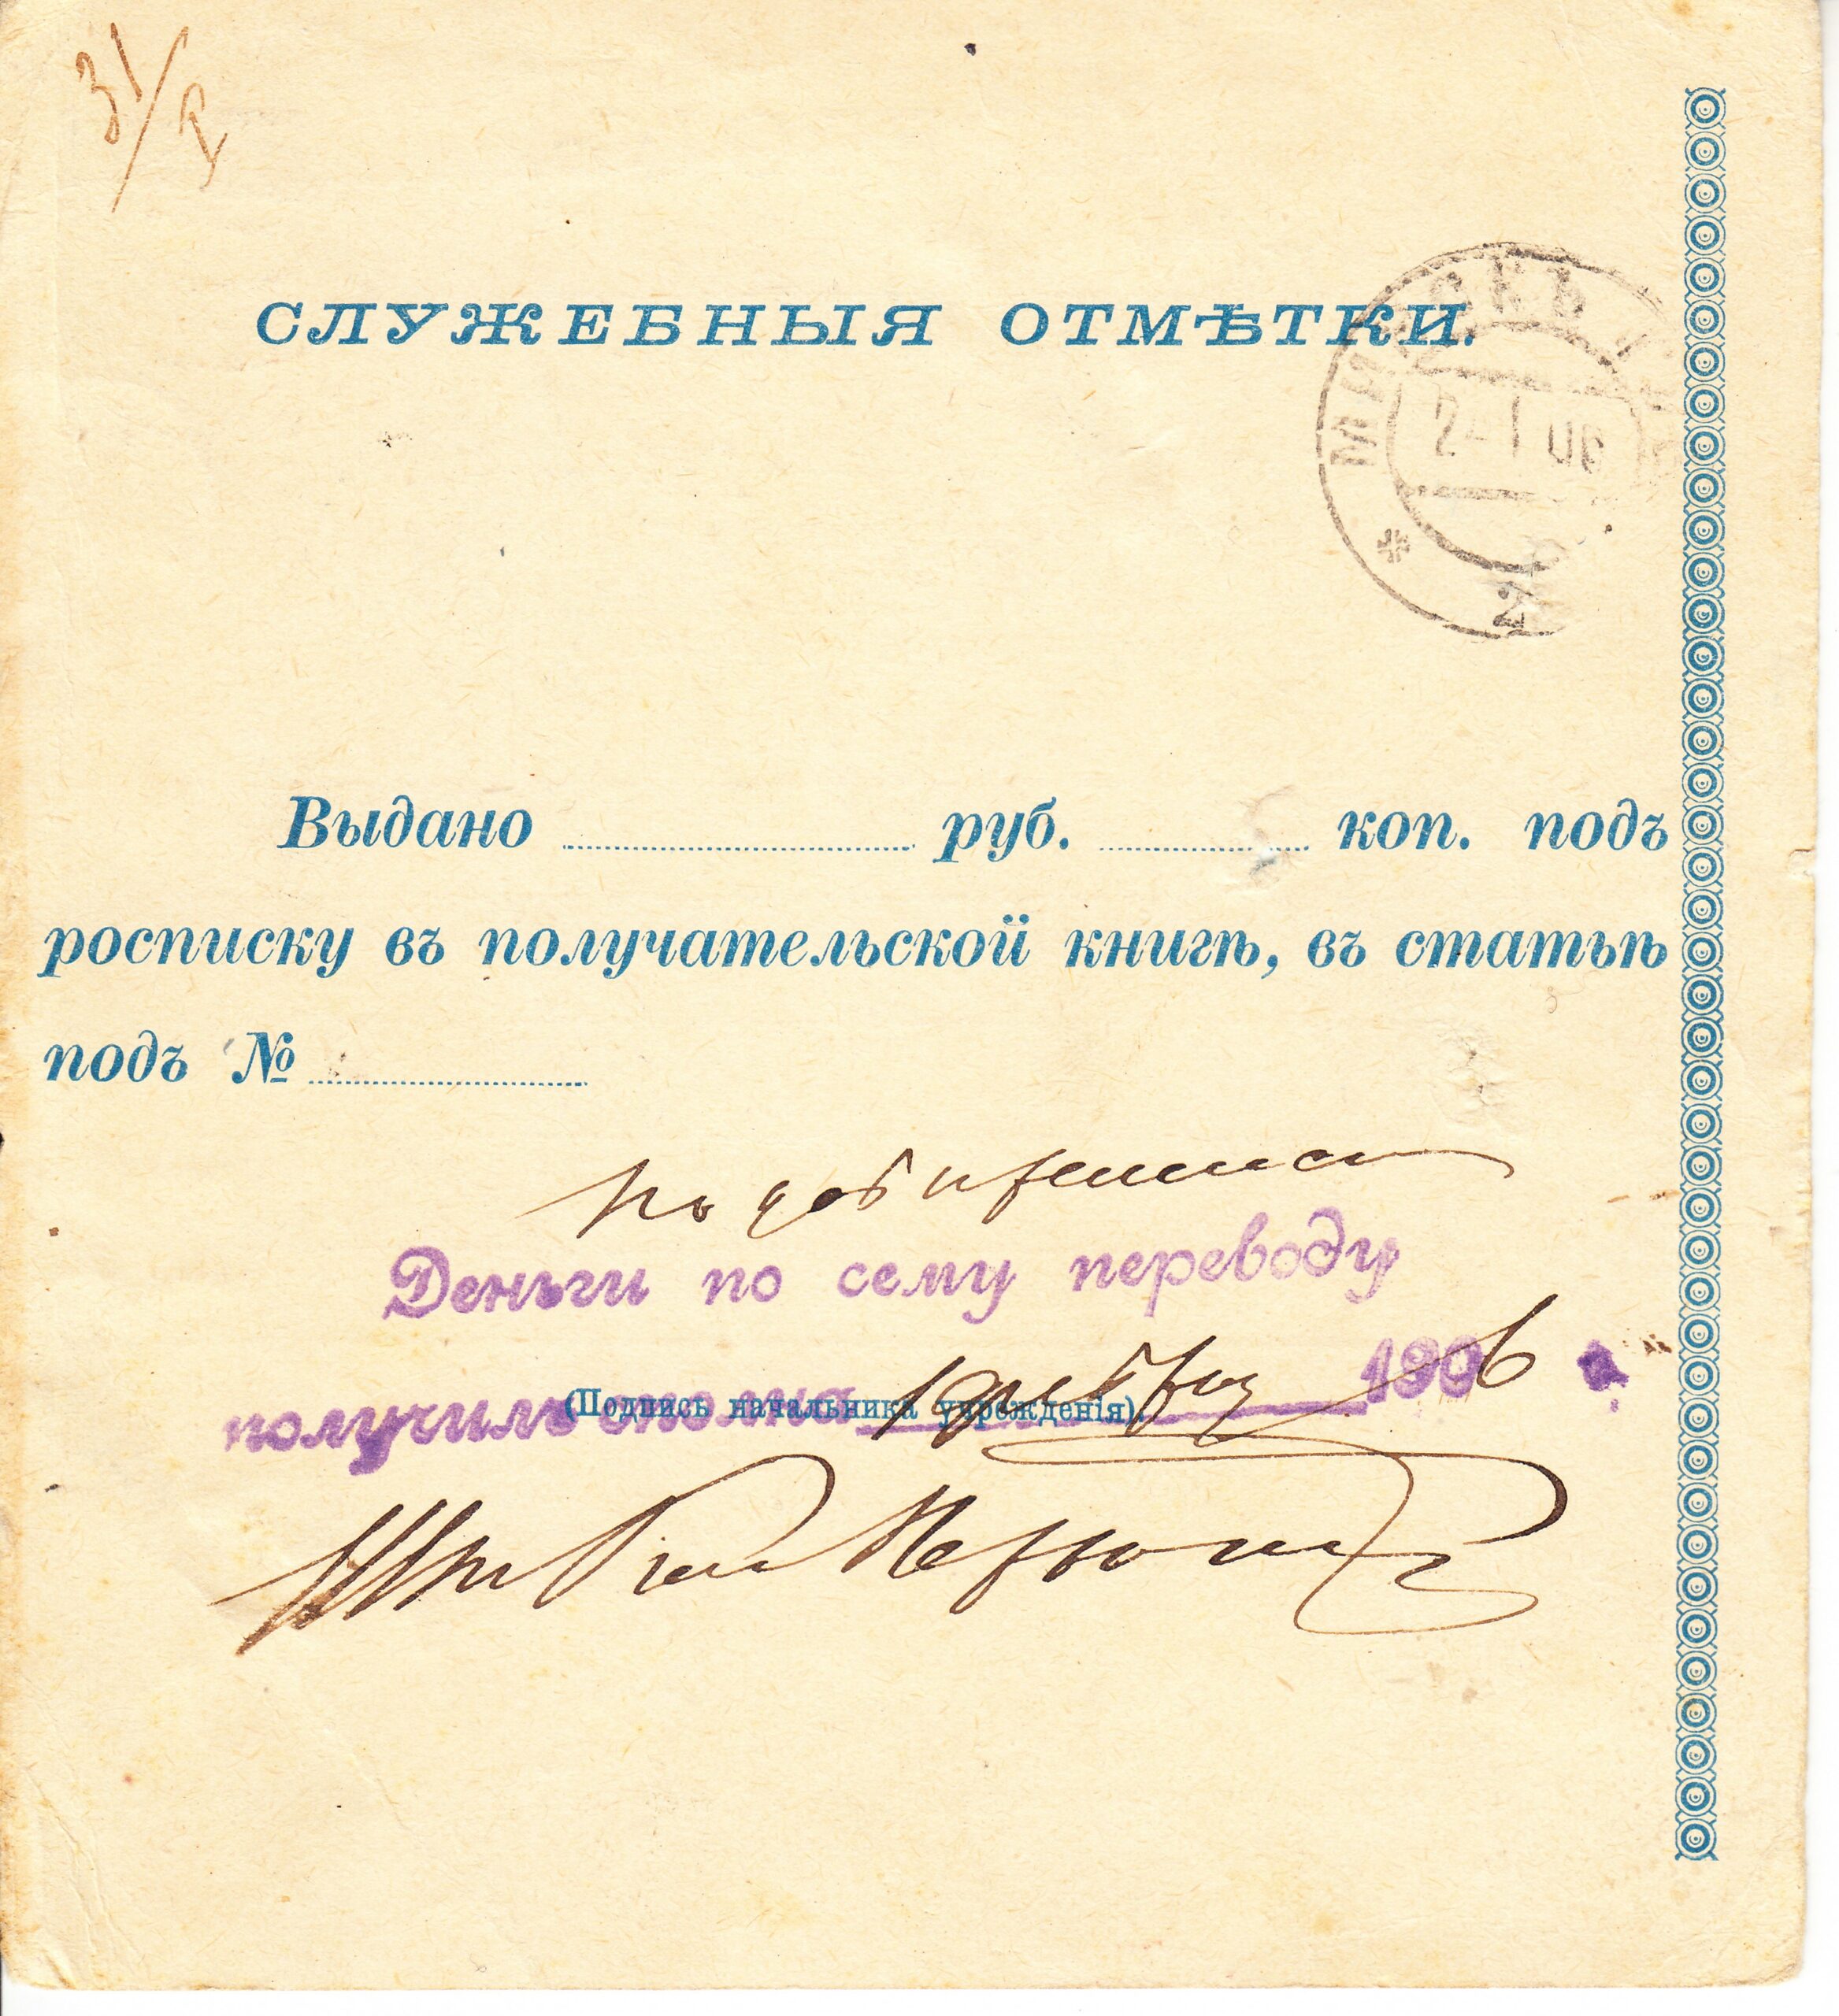 31/
СЛУЖЕБНЫЯ ОТМѢТКИ.
МИНСКЪ
24 1 06
Выдано руб. коп. подъ
росписку въ получательской книгѣ, въ статьѣ
подъ №
по довѣренности
Деньги по сему переводу
получилъ 190 6
(Подпись начальника учрежденія).